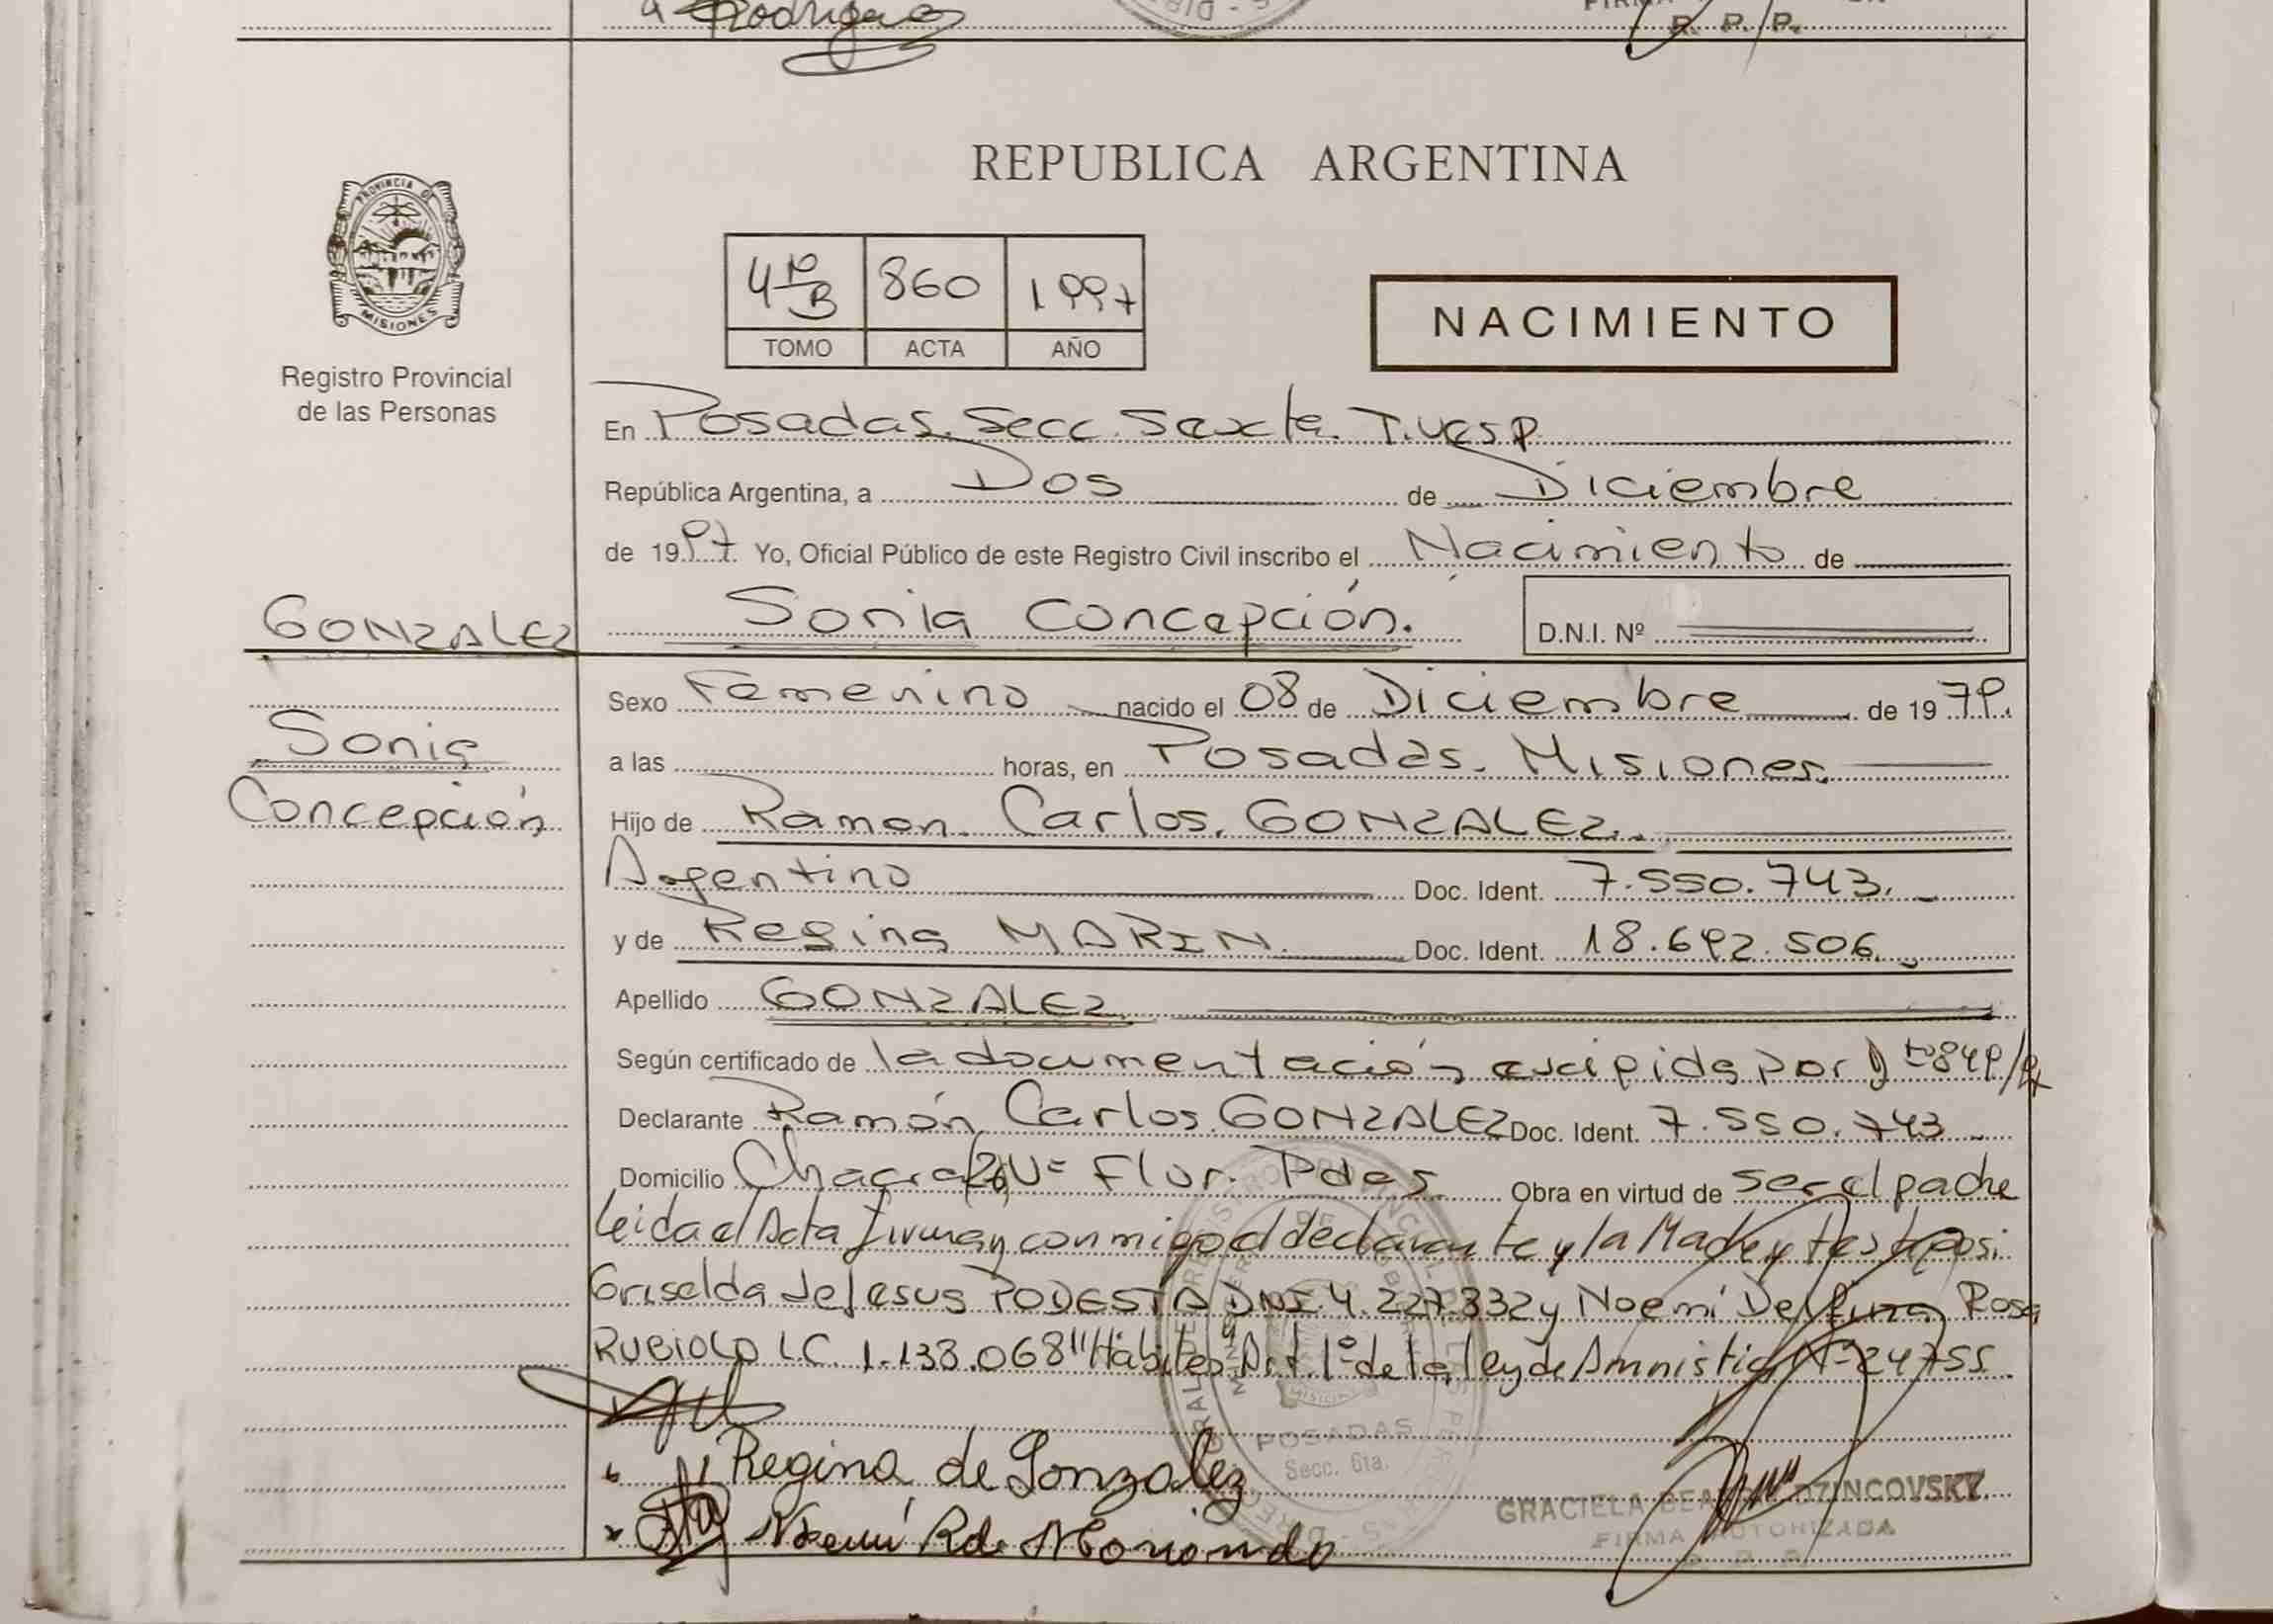 Rodriguez
R. P. P.
REPUBLICA ARGENTINA
PROVINCIA DE
MISIONES
Registro Provincial
de las Personas
860 1997
TOMO ACTA AÑO
NACIMIENTO
En Posadas. Secc. Sexta.
República Argentina, a Dos de Diciembre
de 1997. Yo, Oficial Público de este Registro Civil inscribo el Nacimiento de
GONZALEZ
Sonia Concepción
Sonia Concepción.
D.N.I. Nº
Sexo Femenino nacido el 08 de Diciembre de 1979.
a las horas, en Posadas. Misiones.
Hijo de Ramon Carlos. GONZALEZ.
Argentino Doc. Ident. 7.550.743.
y de Regina MARIN. Doc. Ident. 18.692.506.
Apellido GONZALEZ
Según certificado de la documentación exigida por Dto 849/97
Declarante Ramón Carlos. GONZALEZ Doc. Ident. 7.550.743
Domicilio Chacra Flor. Pdas. Obra en virtud de ser el padre
leida el Acta firman conmigo el declarante y la Madre y
Griselda de Jesus PODESTA DNI. 4.227.332 y Noemí Delfina Rosa
RUBIOLO LC. 1.138.068 "Habiles Art. 1º de la ley de Amnistia Nº 24755
Regina de Gonzalez
Noemí R de Moriondo
POSADAS
Secc. 6ta.
GRACIELA DZINCOVSKY
FIRMA AUTORIZADA